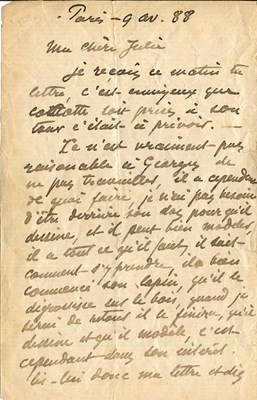 Paris - 9 av. 88
Ma chère Julie
je reçois ce matin ta
lettre, c'est ennuyeux que
cocotte soit prise à son
tour c'était à prévoir. —
Ce n'est vraiment pas
raisonnable à Georges de
ne pas travailler, il a cependant
de quoi faire, je n'ai pas besoin
d'être derrière son dos pour qu'il
dessine, et il peut bien modeler,
il a tout ce qu'il faut, il sait
comment s'y prendre, il a bien
commencé son lapin, qu'il le
dégrossisse sur le bois, quand je
serai de retour il le finira, qu'il
dessine et qu'il modèle c'est
cependant dans son intérêt.
Lis-lui donc ma lettre et dis